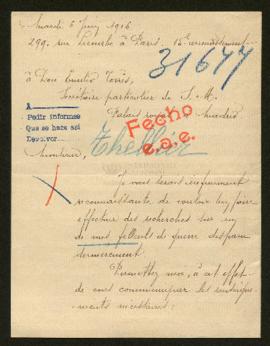 Mardi 6 Juin 1916
299, rue Lecourbe à Paris, 15e arrondissement
31677
à Don Emilio Torrès,
Secrétaire particulier de S. M.
Palais royal Madrid
A
Pedir informes
Que se hace así
Devolver
Fecho
e.a.e.
Monsieur,
Je vous serais infiniment
reconnaissante de vouloir bien faire
effectuer des recherches sur un
de mes filleuls de guerre disparu
dernièrement.
Permettez moi, à cet effet
de vous communiquer les renseigne-
ments nécessaires: